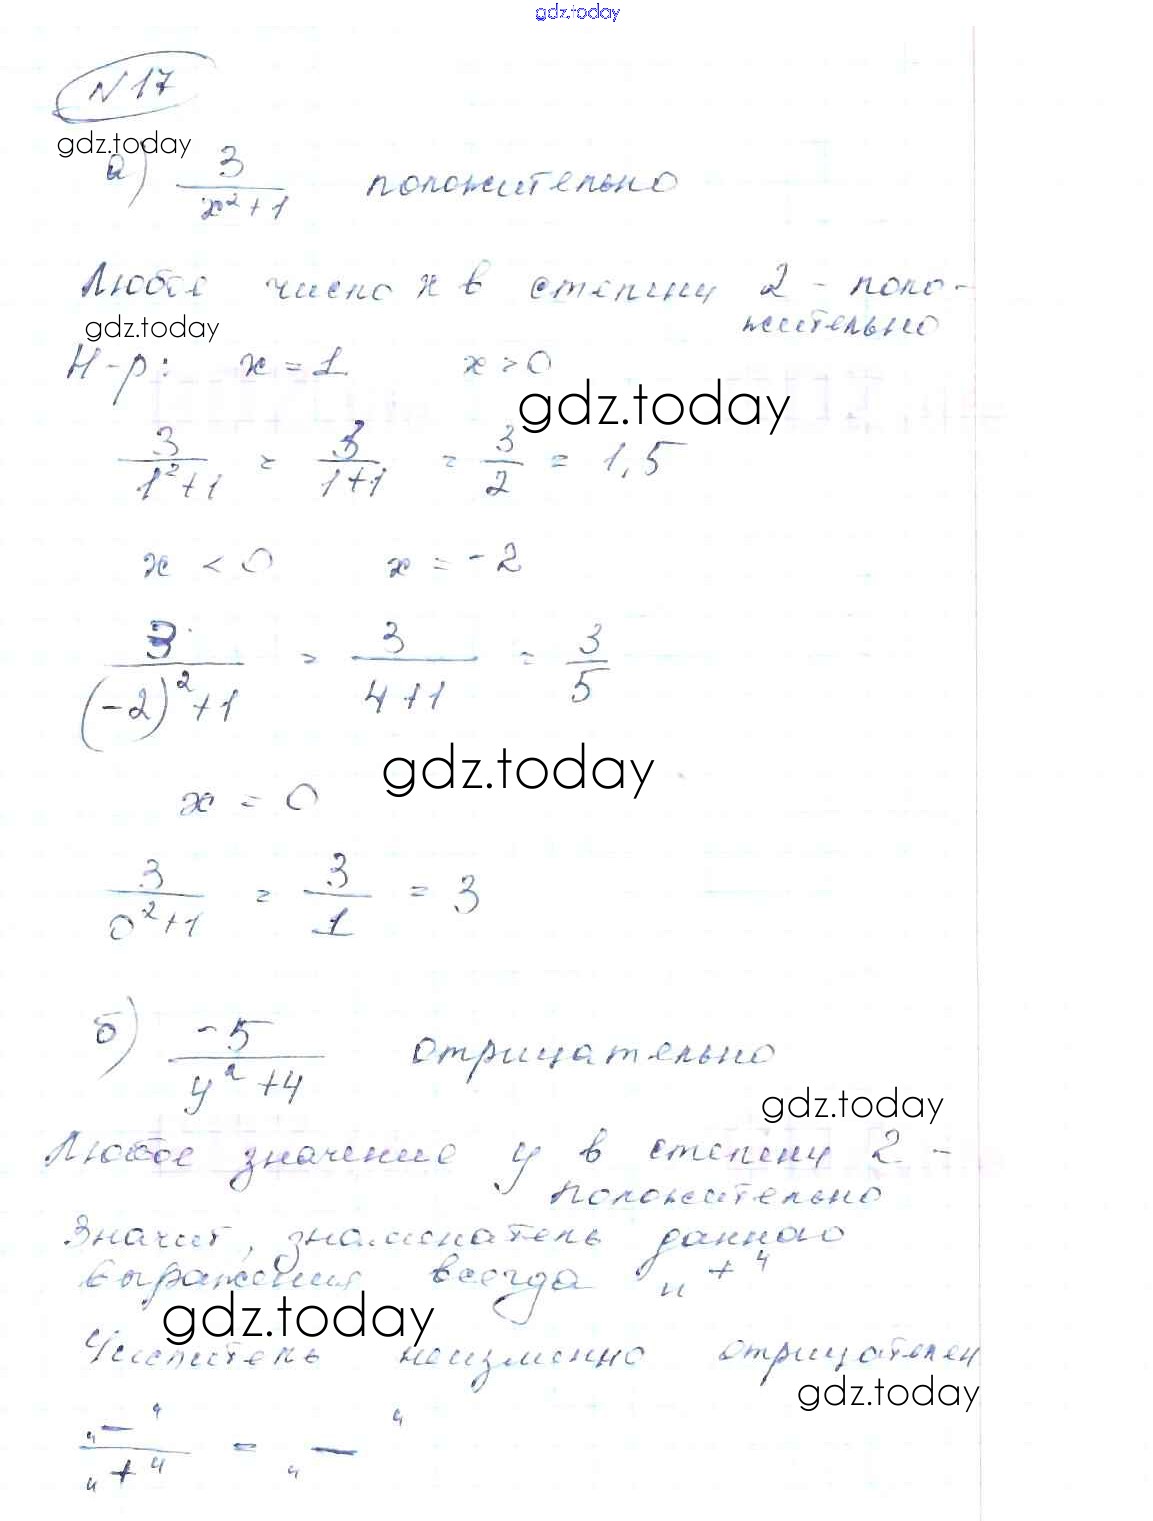 gdz.today
N 17
gdz.today
а) 3/(x²+1) положительно
Любое число x в степени 2 - поло-
жительно
gdz.today
Н-р: x = 1 x > 0
gdz.today
3/(1²+1) = 3/(1+1) = 3/2 = 1,5
x < 0 x = -2
3/((-2)²+1) = 3/(4+1) = 3/5
gdz.today
x = 0
3/(0²+1) = 3/1 = 3
б) -5/(y²+4) отрицательно
gdz.today
Любое значение y в степени 2 -
положительно
Значит, знаменатель данного
выражения всегда "+"
gdz.today
Числитель неизменно отрицателен
gdz.today
"-"/"+" = "-"